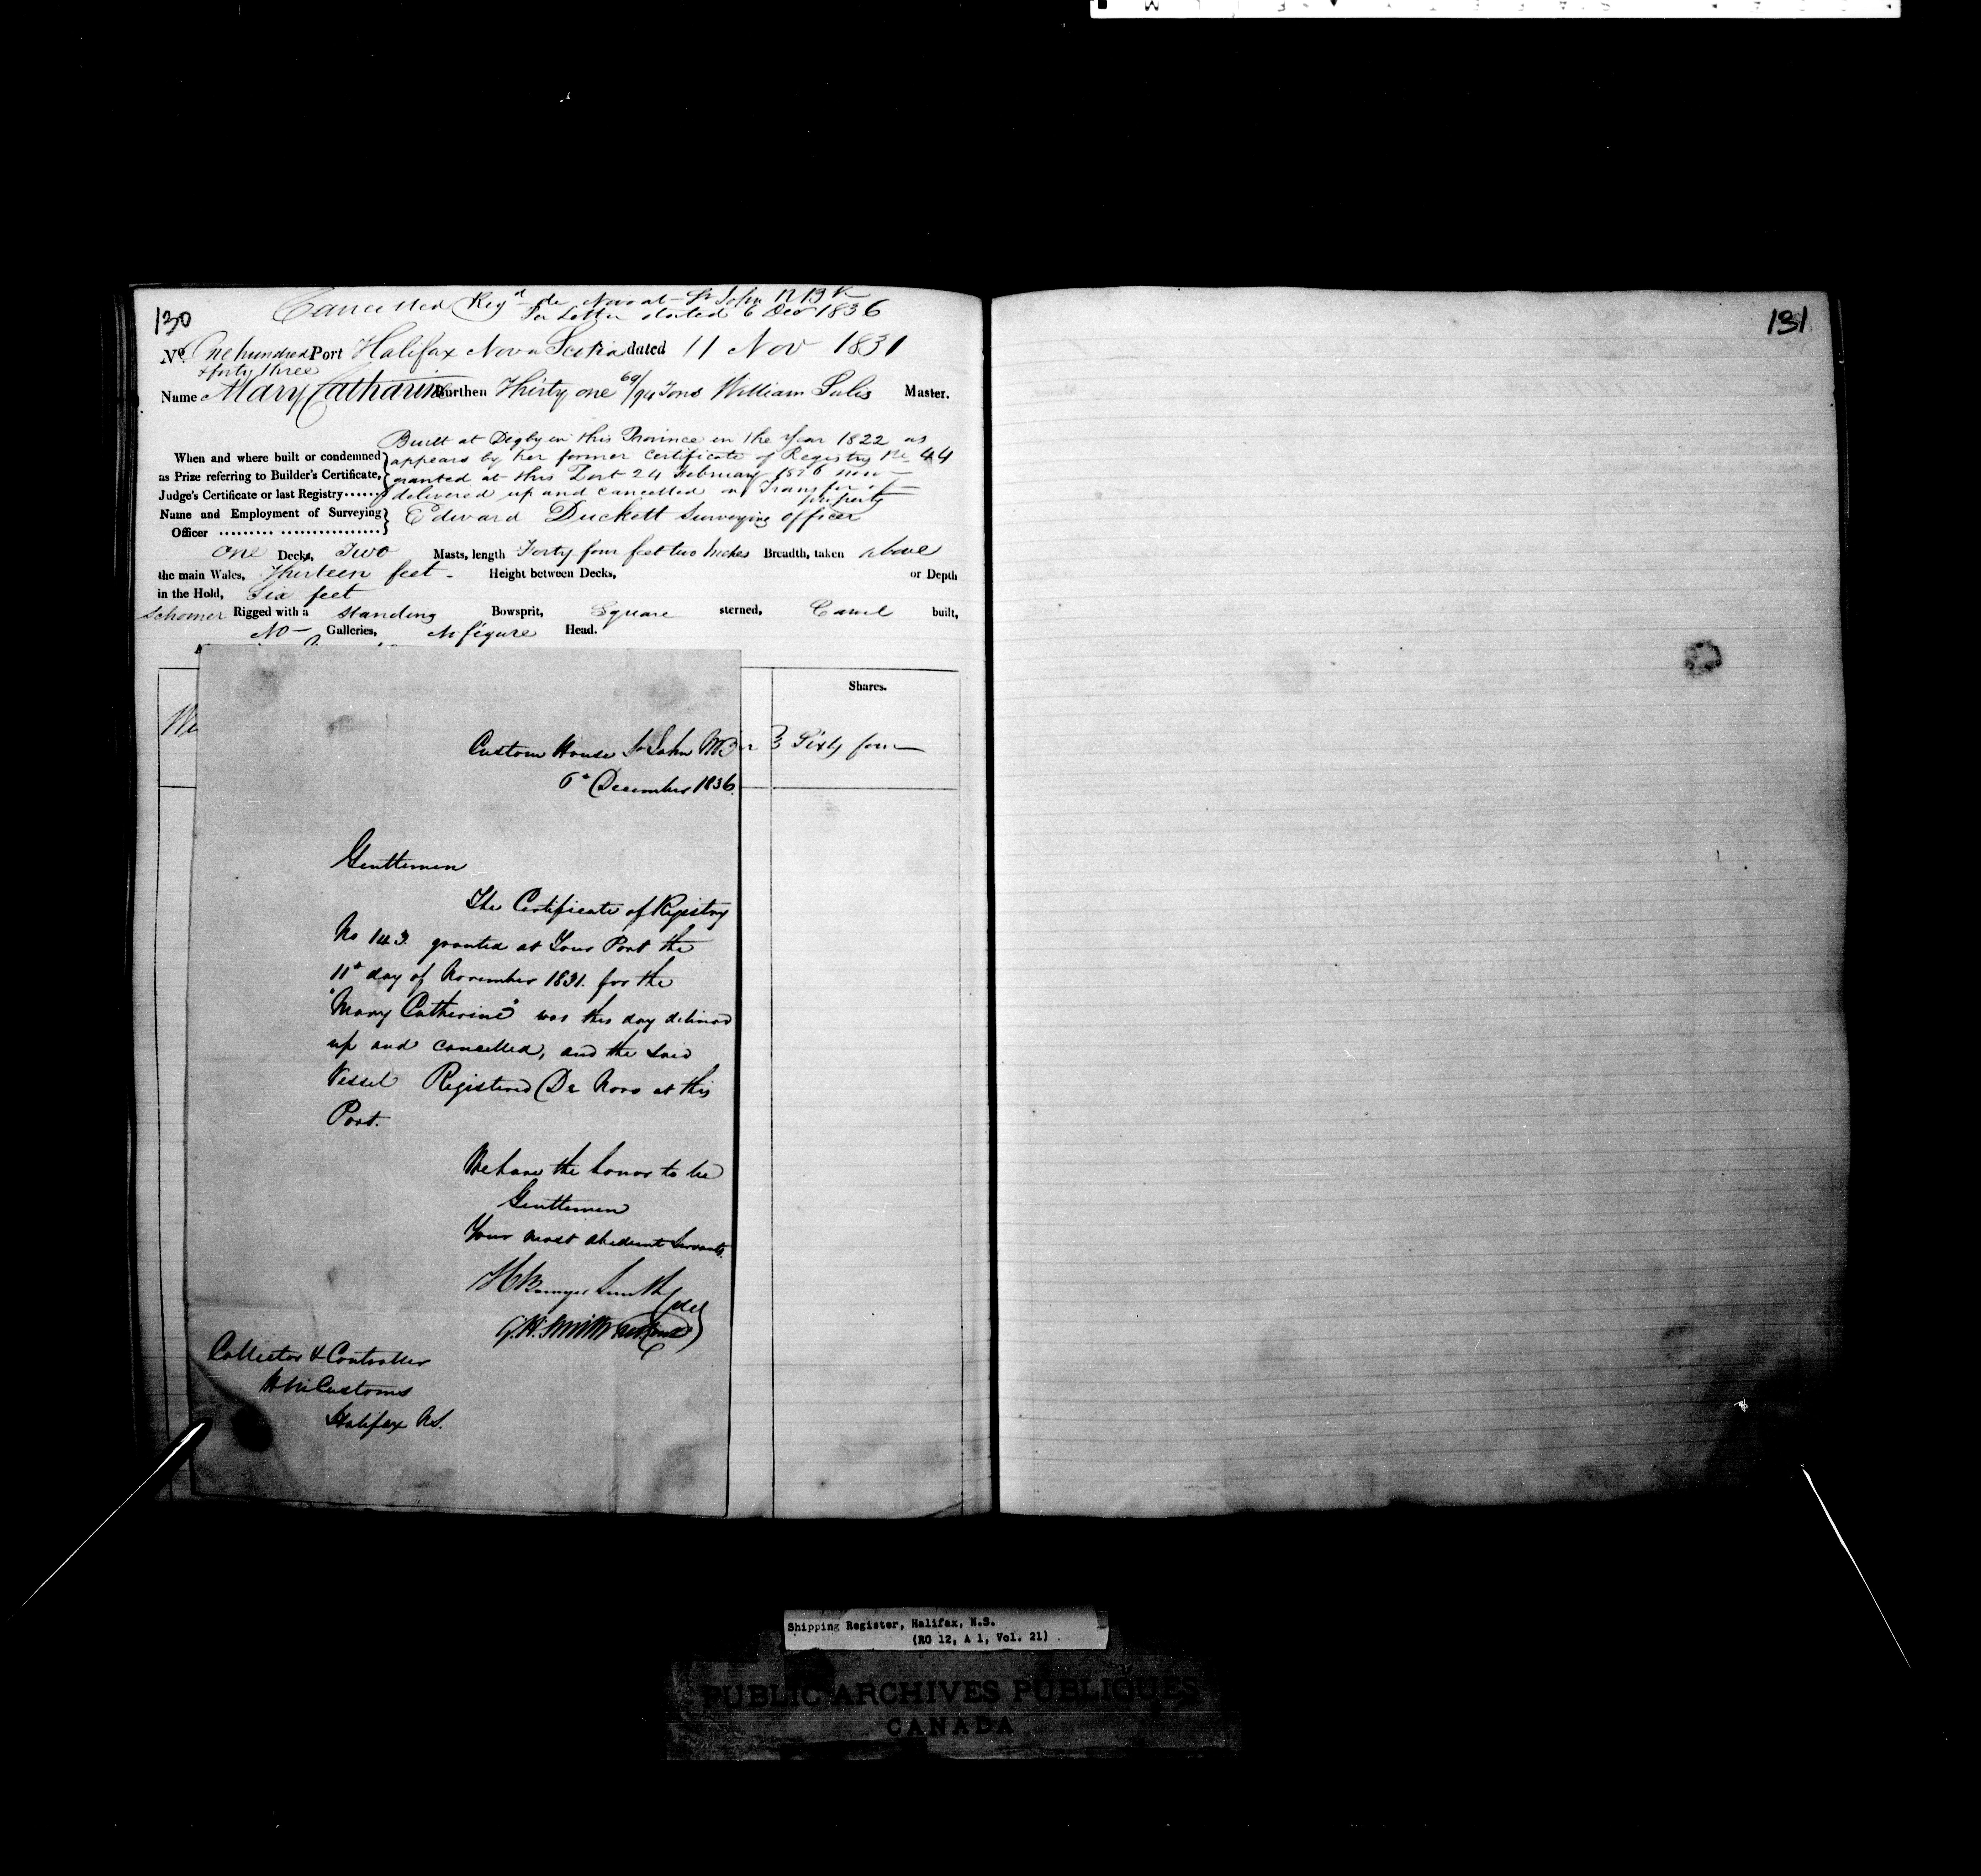 130
Cancelled Regd de Novo at St John N Bk
Per Letter dated 6 Dec 1836
No. One hundred Port Halifax Nova Scotia dated 11 Nov 1831
& forty three
Name Mary Catharine Burthen Thirty one 69/94 Tons William Sulis Master.
Built at Digby in this Province in the Year 1822 as
When and where built or condemned appears by her former Certificate of Registry No. 44
as Prize referring to Builder's Certificate, granted at this Port 24 February 1826 now
Judge's Certificate or last Registry...... delivered up and cancelled on Transfer of
property
Name and Employment of Surveying Edward Duckett Surveying officer
Officer ......... ..................
One Decks, Two Masts, length Forty four feet two Inches Breadth, taken above
the main Wales, Thirteen feet - Height between Decks, or Depth
in the Hold, Six feet
Schooner Rigged with a standing Bowsprit, Square sterned, Carvel built,
No Galleries, No figure Head.
Shares.
Sixty four
Custom House St John NB
6th December 1836.
Gentlemen
The Certificate of Registry
No 143. granted at Your Port the
11th day of November 1831. for the
"Mary Catherine" was this day delivered
up and cancelled, and the said
Vessel Registered De Novo at this
Port.
We have the honor to be
Gentlemen
Your most obedient Servants
H Bowyer Smith
G.H. Smith
Collector & Controller
H M Customs
Halifax N.S.
131
Shipping Register, Halifax, N.S.
(RG 12, A 1, Vol. 21)
PUBLIC ARCHIVES PUBLIQUES
CANADA